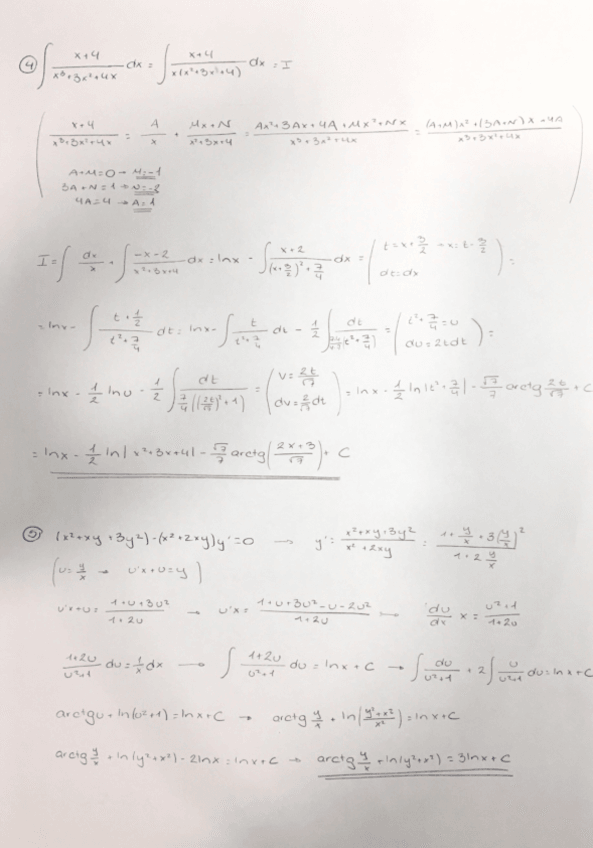 ④ ∫ (x+4)/(x³+3x²+4x) dx = ∫ (x+4)/(x(x²+3x+4)) dx = I
( (x+4)/(x³+3x²+4x) = A/x + (Mx+N)/(x²+3x+4) = (Ax²+3Ax+4A+Mx²+Nx)/(x³+3x²+4x) = ((A+M)x²+(3A+N)x+4A)/(x³+3x²+4x)
A+M=0 → M=-1
3A+N=1 → N=-2
4A=4 → A=1 )
I = ∫ dx/x + ∫ (-x-2)/(x²+3x+4) dx = lnx - ∫ (x+2)/((x+3/2)²+7/4) dx = ( t=x+3/2 → x=t-3/2
dt=dx ) =
= lnx - ∫ (t+1/2)/(t²+7/4) dt = lnx - ∫ t/(t²+7/4) dt - 1/2 ∫ dt/(t²+7/4) = ( t²+7/4=u
du=2tdt ) =
= lnx - 1/2 lnu - 1/2 ∫ dt/(7/4((2t/√7)²+1)) = ( v=2t/√7
dv=2/√7 dt ) = lnx - 1/2 ln|t²+7/4| - √7/7 arctg 2t/√7 + C
= lnx - 1/2 ln|x²+3x+4| - √7/7 arctg((2x+3)/√7) + C
⑤ (x²+xy+3y²)-(x²+2xy)y'=0 → y' = (x²+xy+3y²)/(x²+2xy) = (1+y/x+3(y/x)²)/(1+2 y/x)
(u=y/x → u'x+u=y')
u'x+u = (1+u+3u²)/(1+2u) → u'x = (1+u+3u²-u-2u²)/(1+2u) → du/dx x = (u²+1)/(1+2u)
(1+2u)/(u²+1) du = 1/x dx → ∫ (1+2u)/(u²+1) du = lnx+C → ∫ du/(u²+1) + 2∫ u/(u²+1) du = lnx+C
arctgu + ln(u²+1) = lnx+C → arctg y/x + ln((y²+x²)/x²) = lnx+C
arctg y/x + ln(y²+x²) - 2lnx = lnx+C → arctg y/x + ln(y²+x²) = 3lnx+C